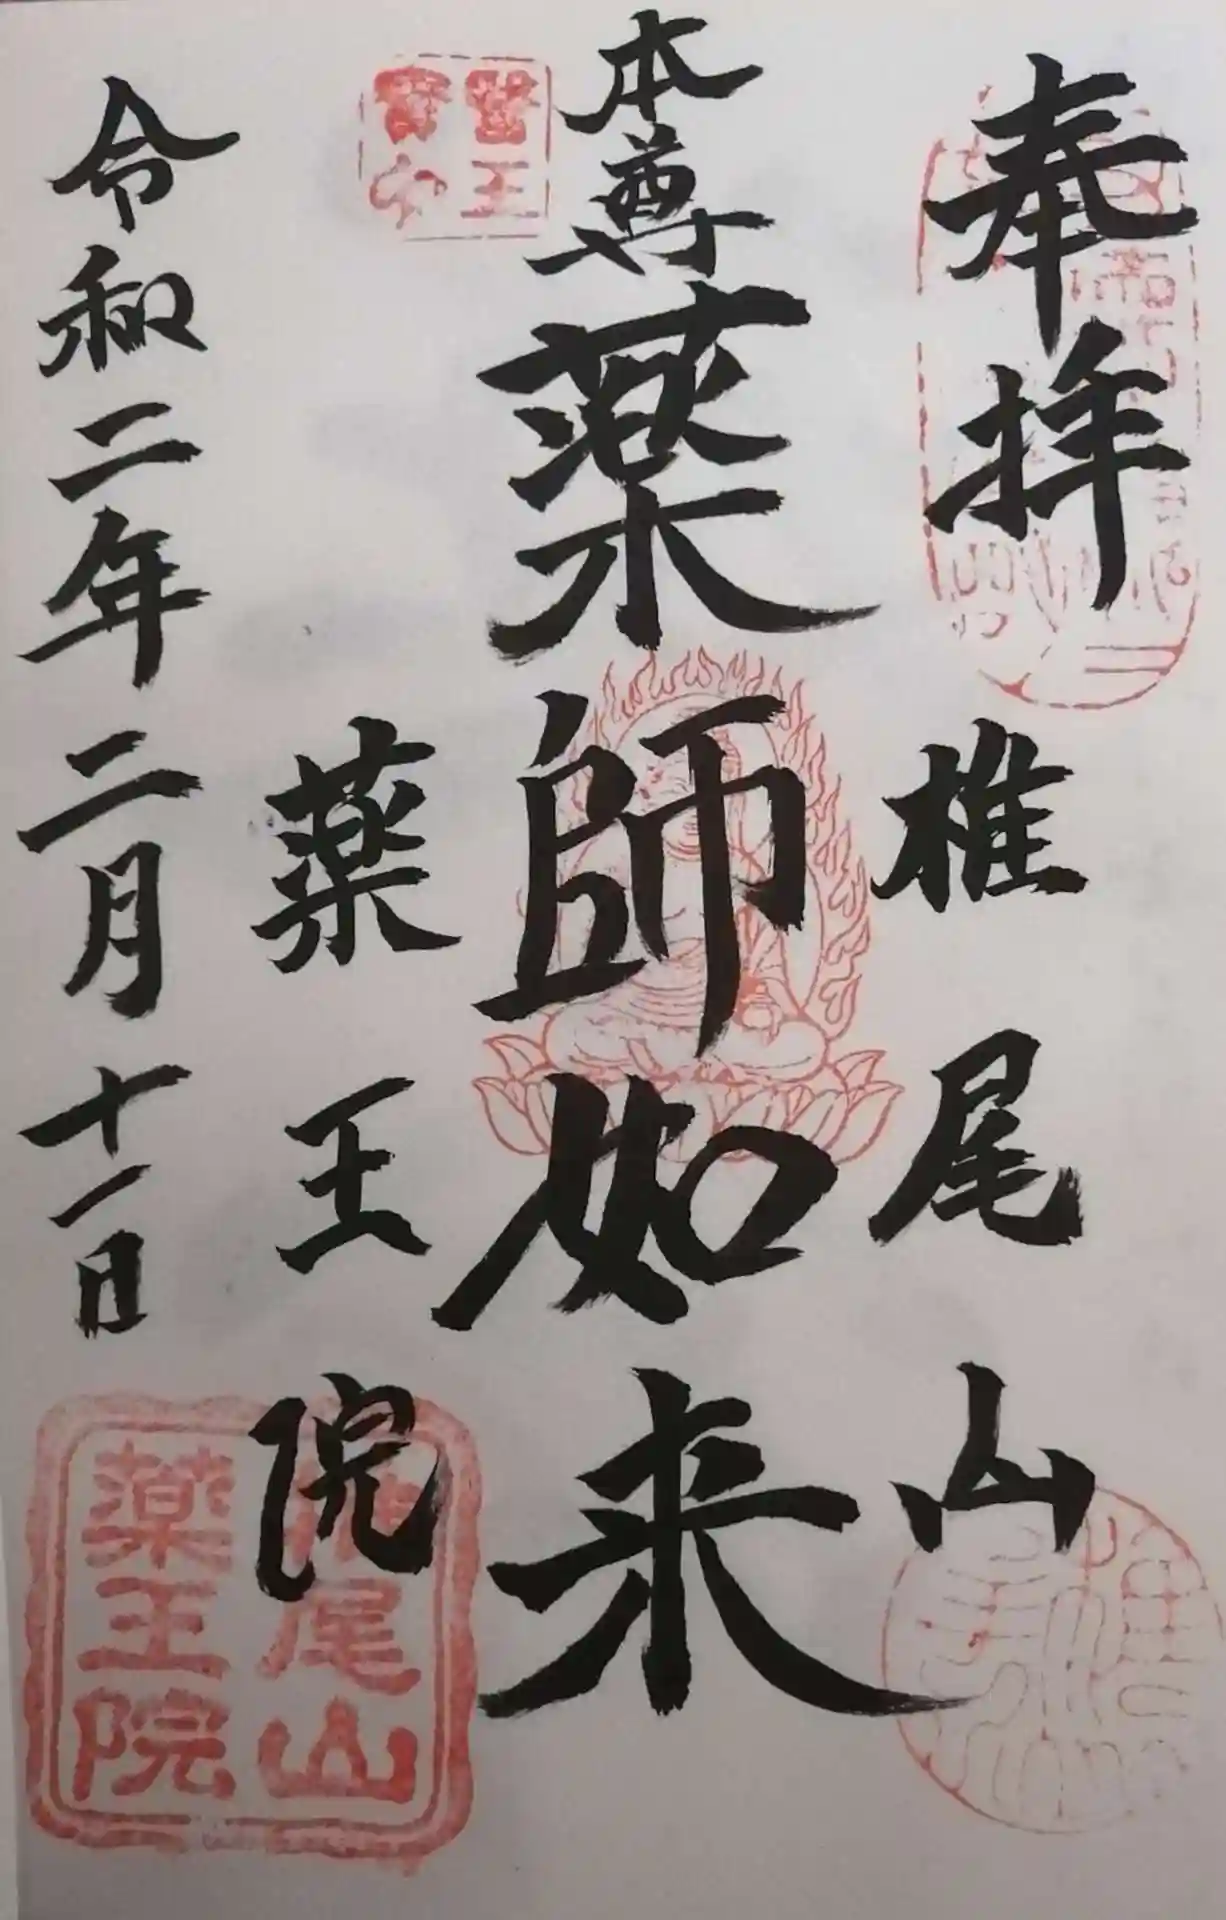 奉拝
椎尾山
本尊
薬師如来
薬王院
令和二年二月十一日
医王
宝印
椎尾山
薬王院